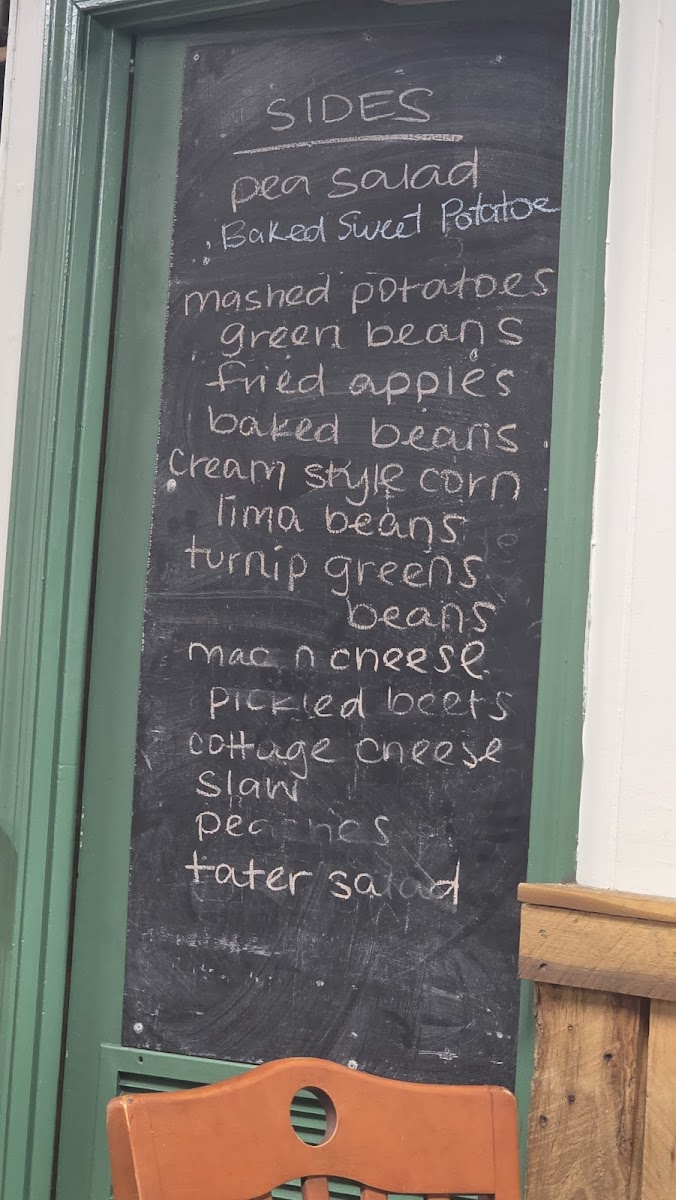 SIDES
pea salad
Baked Sweet Potatoe
mashed potatoes
green beans
fried apples
baked beans
cream style corn
lima beans
turnip greens
beans
mac n cheese
pickled beets
cottage cheese
slaw
peaches
tater salad